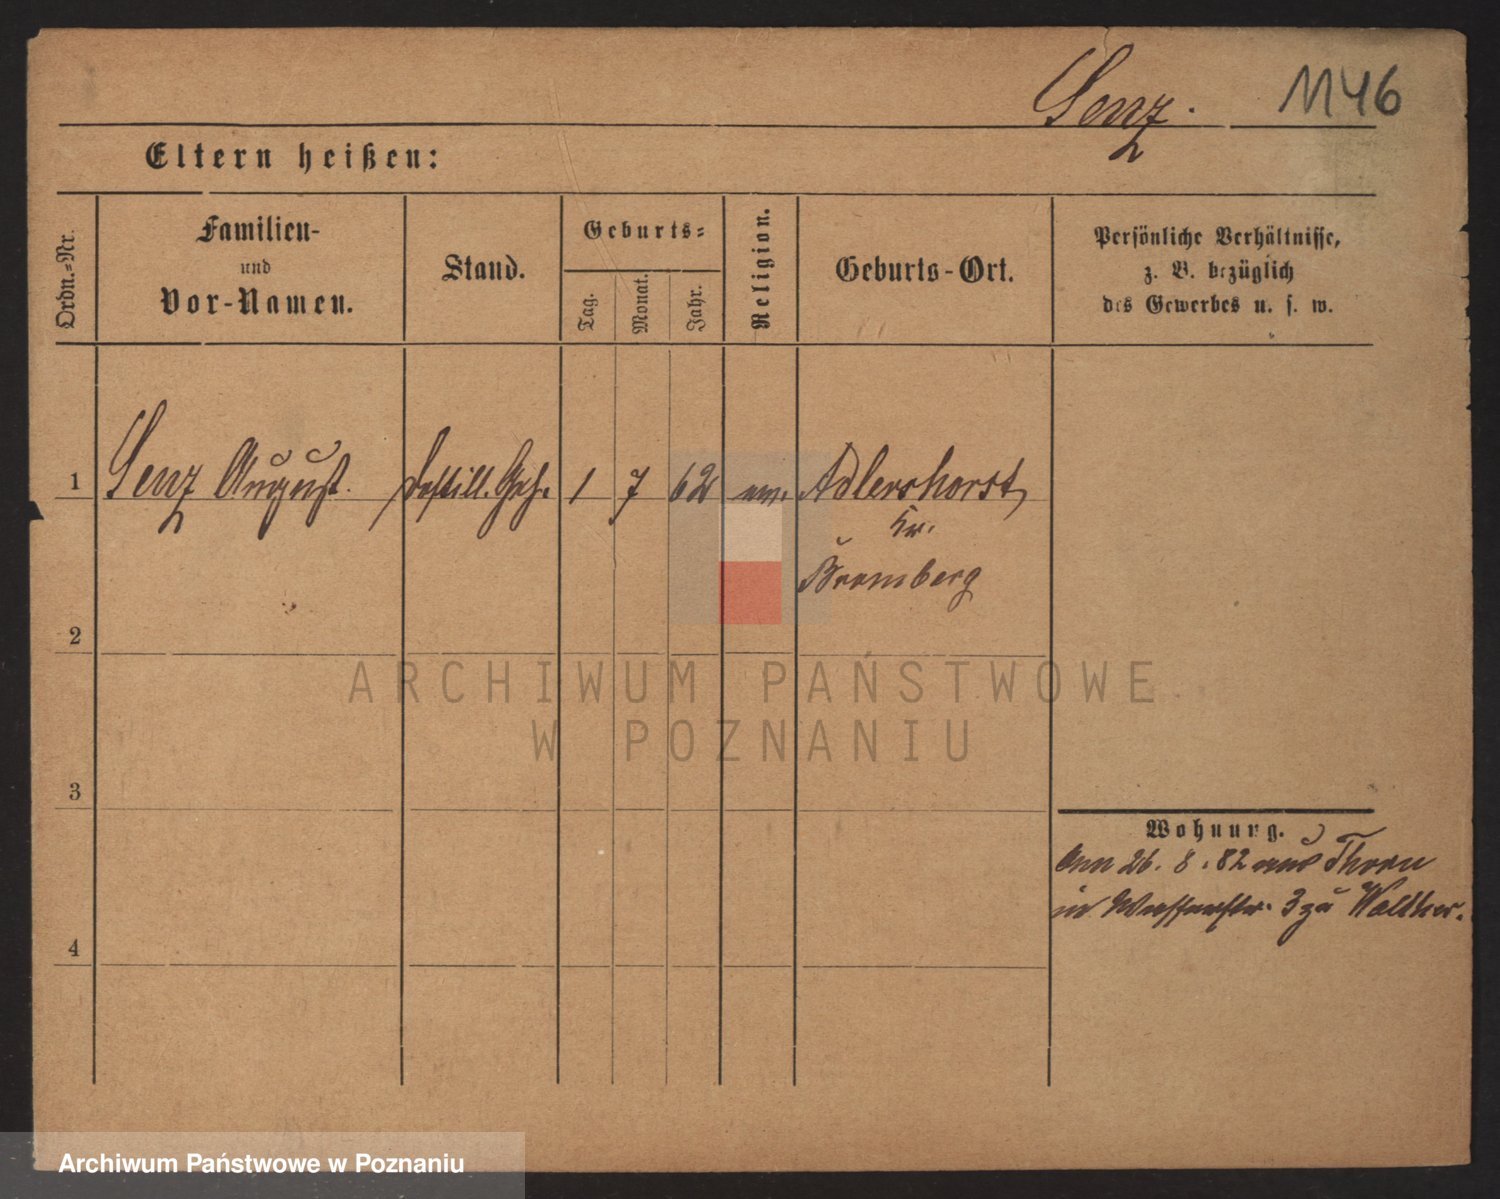 Lenz.
1146
Eltern heißen:
Ordn.-Nr.
Familien-
und
Vor-Namen.
Stand.
Geburts-
Tag.
Monat.
Jahr.
Religion.
Geburts-Ort.
Persönliche Verhältnisse,
z. B. bezüglich
des Gewerbes u. s. w.
1
Lenz August. Destill. Geh. 1 7 62 ev. Adlershorst,
Kr.
Bromberg
2
3
4
Wohnung.
26. 8. 82 aus Thorn
in Wasserstr. 3 zu Walther.
ARCHIWUM PAŃSTWOWE
W POZNANIU
Archiwum Państwowe w Poznaniu